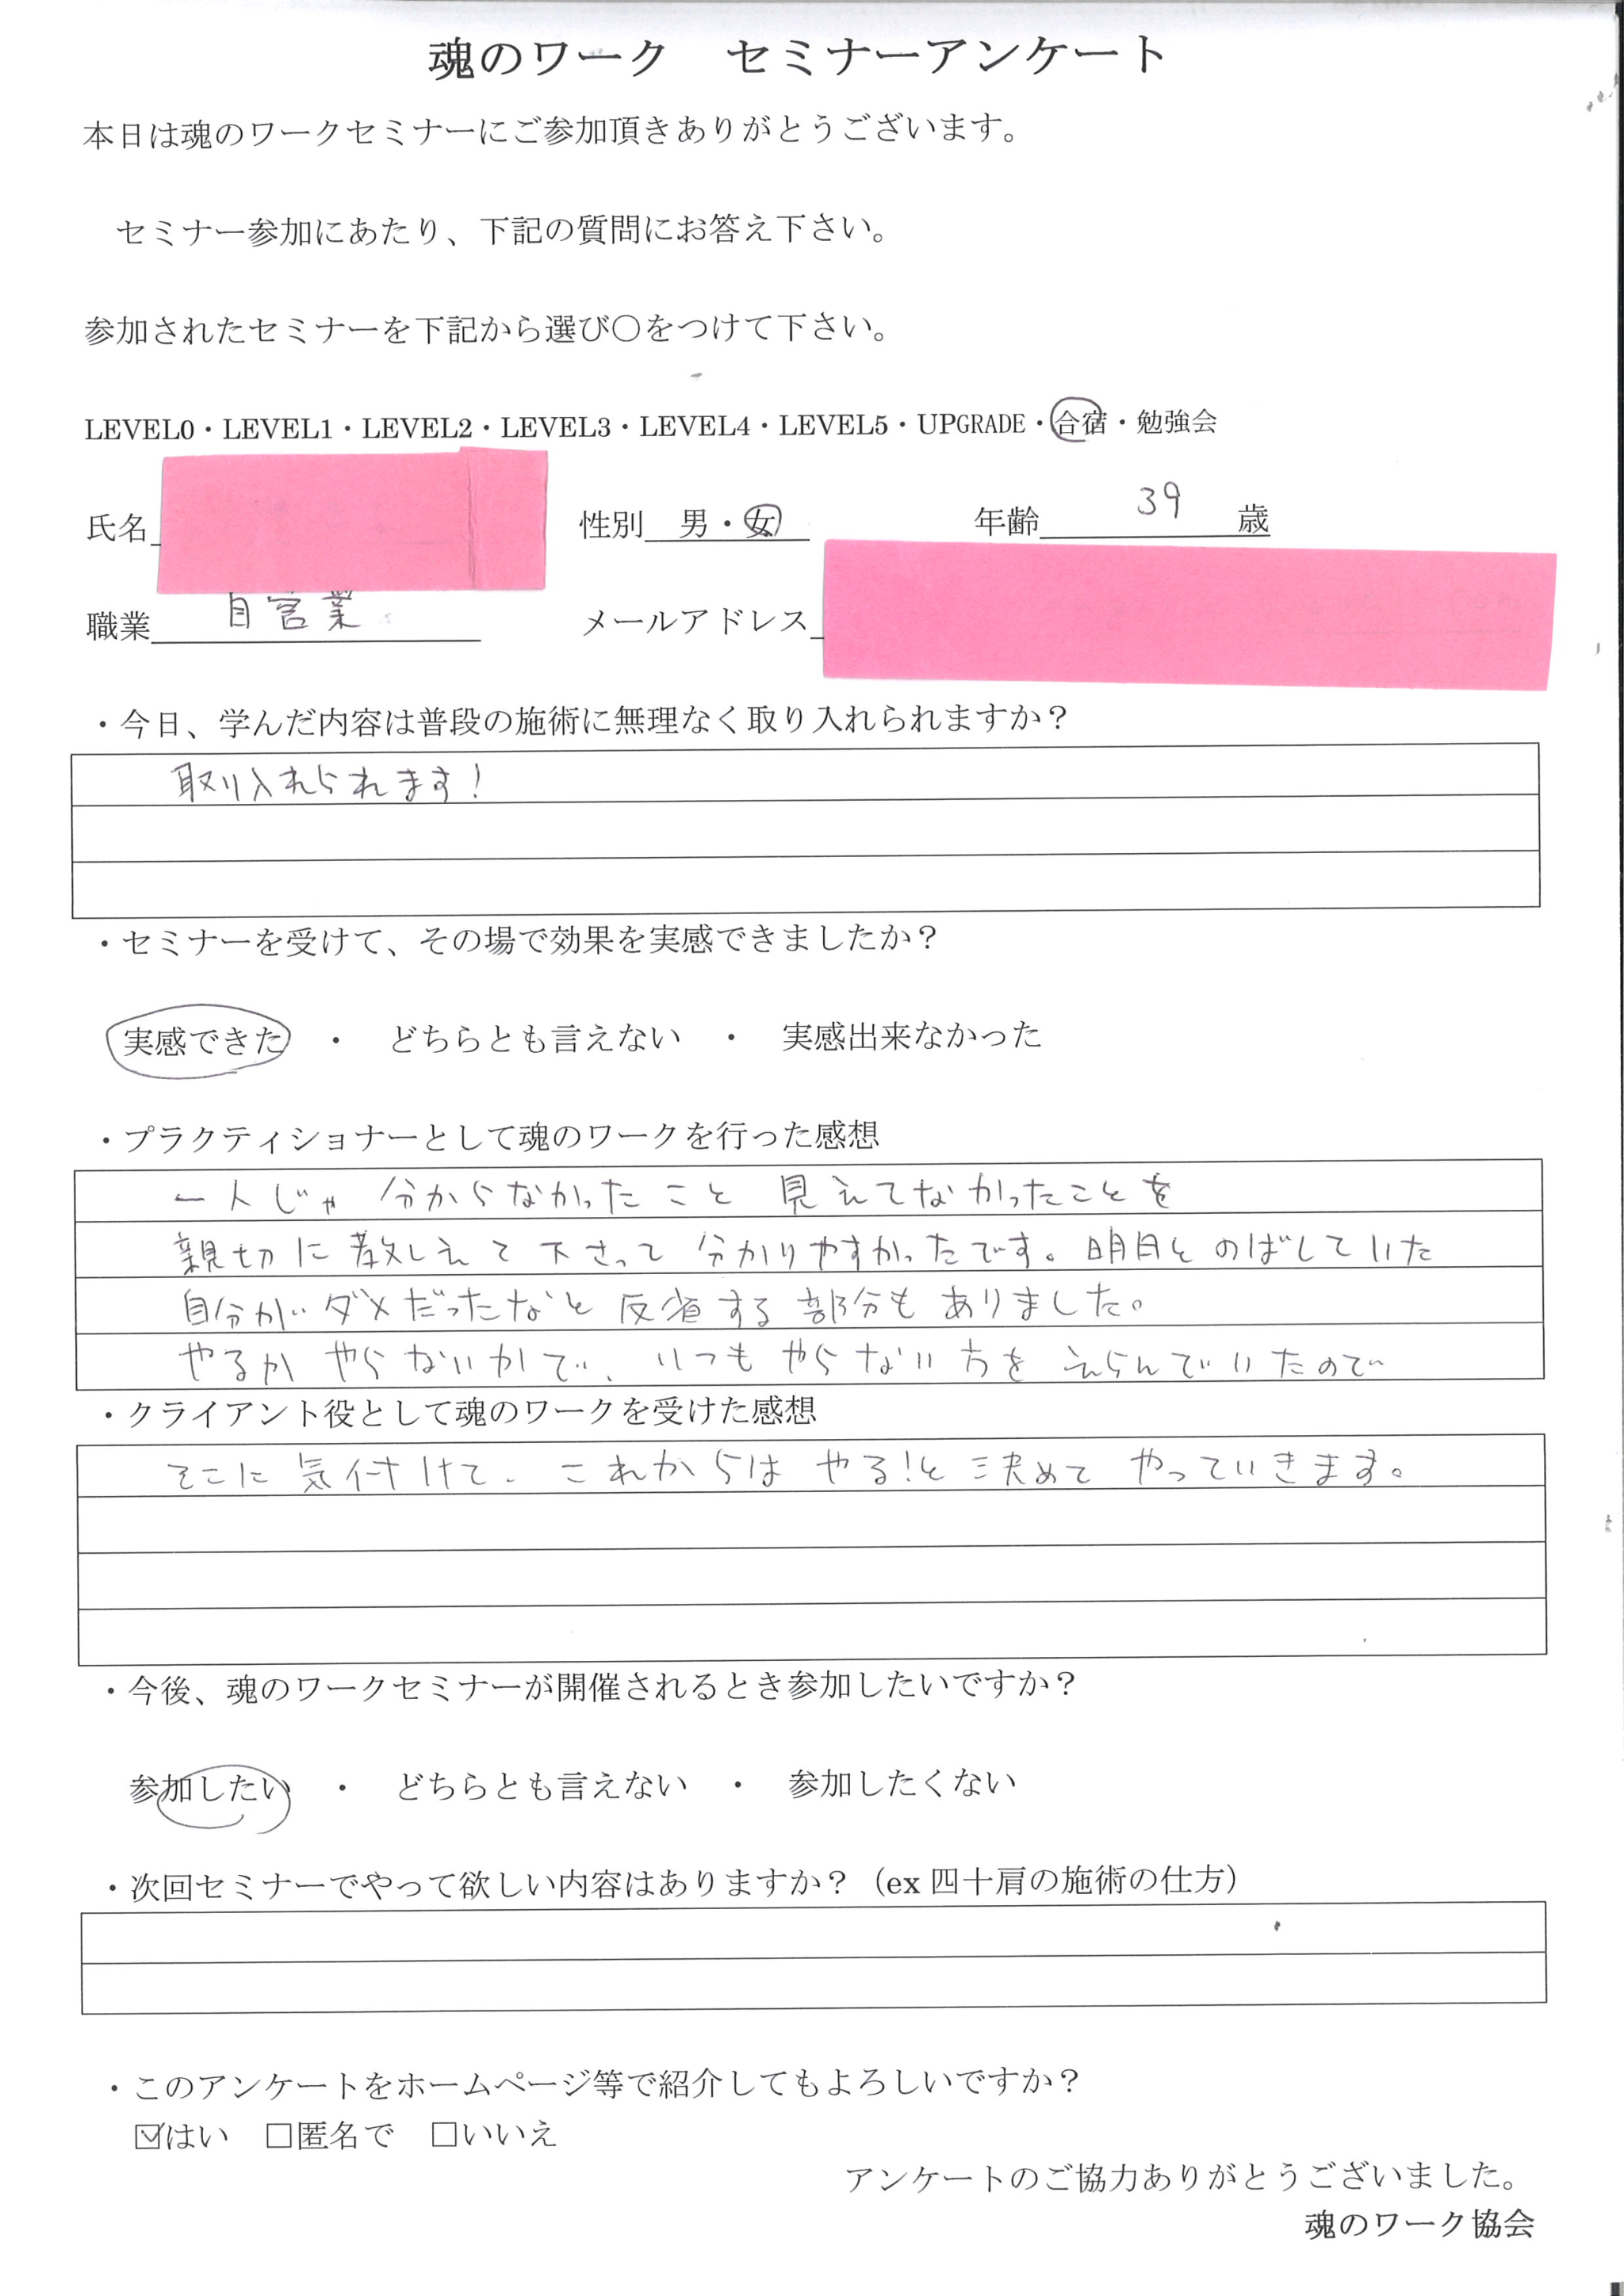 魂のワーク　セミナーアンケート
本日は魂のワークセミナーにご参加頂きありがとうございます。
セミナー参加にあたり、下記の質問にお答え下さい。
参加されたセミナーを下記から選び〇をつけて下さい。
LEVEL0・LEVEL1・LEVEL2・LEVEL3・LEVEL4・LEVEL5・UPGRADE・合宿・勉強会
氏名 性別 男・女 年齢 39 歳
職業 自営業 メールアドレス
・今日、学んだ内容は普段の施術に無理なく取り入れられますか？
取り入れられます！
・セミナーを受けて、その場で効果を実感できましたか？
実感できた ・ どちらとも言えない ・ 実感出来なかった
・プラクティショナーとして魂のワークを行った感想
一人じゃ 分からなかったこと 見えてなかったことを
親切に教しえて下さって 分かりやすかったです。明日とのばしていた
自分がダメだったなと反省する部分もありました。
やるかやらないかで、いつもやらない方をえらんでいたので
・クライアント役として魂のワークを受けた感想
そこに気付けて、これからは やる！と決めて やっていきます。
・今後、魂のワークセミナーが開催されるとき参加したいですか？
参加したい ・ どちらとも言えない ・ 参加したくない
・次回セミナーでやって欲しい内容はありますか？（ex 四十肩の施術の仕方）
・このアンケートをホームページ等で紹介してもよろしいですか？
☑はい □匿名で □いいえ
アンケートのご協力ありがとうございました。
魂のワーク協会